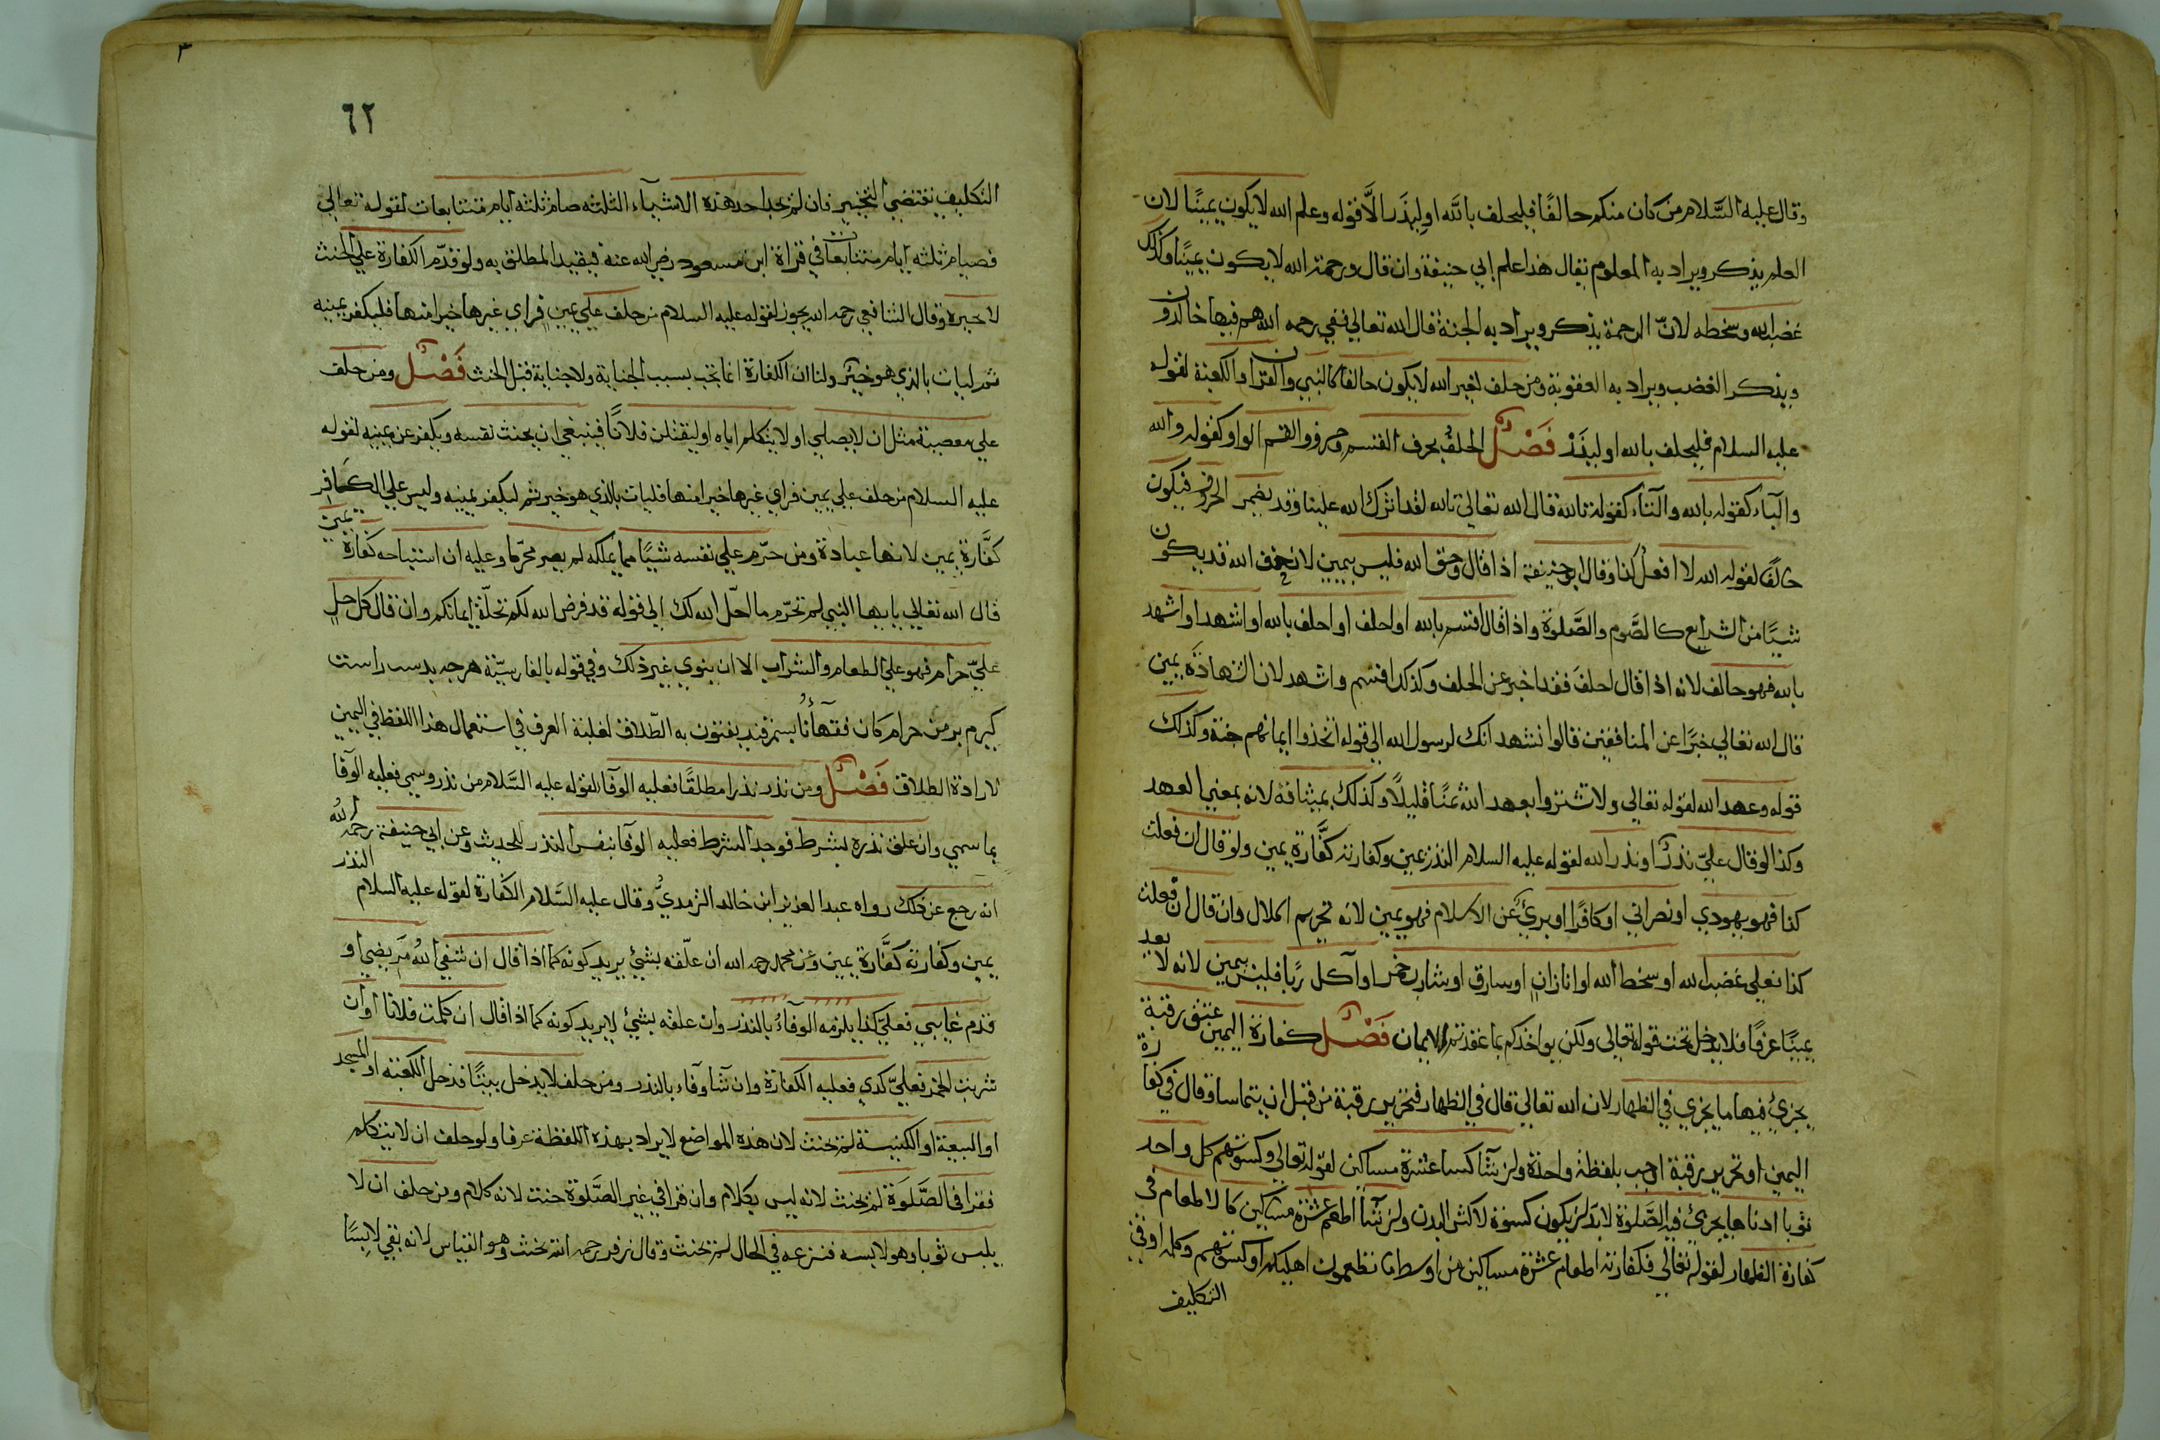 وقال عليه السَّلام من كان منكم حالفًا فليحلف بالله او ليذَر الَّا قوله وعلم الله لا يكون يمينًا لان
العلم يذكر ويراد به المعلوم يقال هذا علم ابي حنيفة وان قال ورحمة الله لا يكون يمينًا وكذلك
غضب الله وسخطه لانّ الرحمة يذكر ويراد به الجنة قال الله تعالي ففي رحمه الله هم فيها خالدون
ويذكر الغضب ويراد به العقوبة ومن حلف لغير الله لا يكون حالفا كالنبي والقران والكعبة لقوله
عليه السلام فليحلف بالله او ليذَرْ فَصْلٌ الحلف بحرف القسم وحروف القسم الواو كقوله والله
والباء كقوله بالله والتاء كقوله تالله قال الله تعالي تالله لقد اثرك الله علينا وقد يضمر الحروف فيكون
حالفًا لقوله الله لا افعل كذا وقال ابو حنيفة اذا قال وحق الله فليس بيمين لان حق الله قد يكون
شيًا من الشرايع كالصَّوم والصَّلوة واذا قال اقسم بالله او احلف او احلف بالله او اشهد او اشهد
بالله فهو حالف لانه اذا قال احلف فقد اخبر عن الحلف وكذلك اقسم واشهد لان الشهادَة يمين
قال الله تعالي خبرًا عن المنافقين قالوا نشهد انك لرسول الله الي قوله اتخذوا ايمانهم جنة وكذلك
قوله وعهد الله لقوله تعالي ولا تشتروا بعهد الله ثمنًا قليلًا وكذلك بميثاقه لانه بمعني العهد
وكذا لو قال عليّ نذرٌ او نذر الله لقوله عليه السلام النذر يمين وكفارته كفَّارة يمين ولو قال ان فعلت
كذا فهو يهودي او نصراني او كافرًا او بريٌ عن الاسلام فهو يمين لانه تحريم الحلال وان قال ان فعلت
كذا فعلي غضب الله او سخط الله او انا زانٍ او سارق او شارب خمر او آكل ربًا فليس بيمين لانه لا يعد
يمينًا عرفًا فلا يدخل تحت قوله تعالي ولكن يواخذكم بما عقدتم الايمان فَصْلٌ كفارة اليمين عتق رقبة
يجزئ فيها ما يجزي في الظهار لان الله تعالي قال في الظهار فتحرير رقبة من قبل ان يتماسا وقال في كفارة
اليمين او تحرير رقبة اوجب بلفظة واحدة وان شأ كسا عشرة مساكين لقوله تعالي وكسوتهم كل واحد
ثوبا ادناها يجزئ فيه الصَّلوة لابد ان يكون كسوة لاكثر البدن وان شأ اطعم عشرة مساكين كالاطعام في
كفارة الظهار لقوله تعالي فكفارته اطعام عشرة مساكين من اوسط ما تطعمون اهليكم او كسوتهم وكلمه او في
التكليف
٦٢
التكليف تقتضي التخيير فان لم يجد احد هذه الاشيآء الثلثه صام ثلثه ايام متتابعات لقوله تعالي
فصيام ثلثه ايام متتابعات في قراة ابن مسعود رضي الله عنه فيقيد المطلق به ولو قدّم الكفارة علي الحنث
لا يجزه وقال الشافعي رحمه الله يجوز لقوله عليه السلام من حلف علي يمين فراي غيرها خيرا منها فليكفر يمينه
ثم ليات بالذي هو خيرٌ ولنا ان الكفارة انما تجب بسبب الجناية ولا جناية قبل الحنث فَصْلٌ ومن حلف
علي معصية مثل ان لا يصلي او لا يتكلم اباه او ليقتلن فلانًا فينبغي ان يحنث نفسه ويكفر عن يمينه لقوله
عليه السلام من حلف علي يمين فراي غيرها خيرا منها فليات بالذي هو خير ثم ليكفر يمينه وليس علي الكافر
كفَّارة يمين لانها عبادة ومن حرّم علي نفسه شيًا مما يملكه لم يصر محرّما وعليه ان استباحه كفارة يمين
قال الله تعالي يايها النبي لم تحرّم ما احلّ الله لك الي قوله قد فرض الله لكم تحلّة ايمانكم وان قال كل حل
عليّ حرام فهو علي الطعام والشراب الا ان ينوي غير ذلك وفي قوله بالفارسيّة هرجه بدست راست
كيرم بر من حرام كان فقهآئنا بسمرقند يفتون به الطّلاق لغلبة العرف في استعمال هذا اللفظ في اليمين
لارادة الطلاق فَصْلٌ ومن نذر نذرا مطلقًا فعليه الوفآء لقوله عليه السَّلام من نذر وسمي فعليه الوفآ
بما سمي وان علق نذره بشرط فوجد الشرط فعليه الوفآ بنفس النذر للحديث وعن ابي حنيفة رحمه اللهُ
انه رجع عن ذلك رواه عبد العزيز ابن خالد الترمديُّ وقال عليه السَّلام الكفارة لقوله عليه السلام النذر
يمين وكفارته كفَّارة يمين وعن محمد رحمه الله ان علّقه بشيٍ يريد كونه كما اذا قال ان شفي اللهُ مَريضي او
قدم غايبي فعليّ كذا يلزمه الوفآءُ بالنذر وان علقه بشيٍ لا يريد كونه كما اذا قال ان كلمت فلانا او ان
شربت الخمر فعليّ كدي فعليه الكفارة وان شآ وفآء بالنذر ومن حلف لا يدخل بيتًا فدخل الكعبة او المسجد
او البيعة او الكنيسة لم يحنث لان هذه المواضع لا يراد بهذه اللفظة عرفا ولو حلف ان لا يتكلم
فقرا في الصَّلَوة لم يحنث لانه ليس بكلام وان قرا في غير الصَّلوة حنث لانه كلام ومن حلف ان لا
يلبس ثوبا وهو لابسه فنزعه في الحال لم يحنث وقال زفر رحمه الله يحنث وهو القياس لانه بقي لابسًا